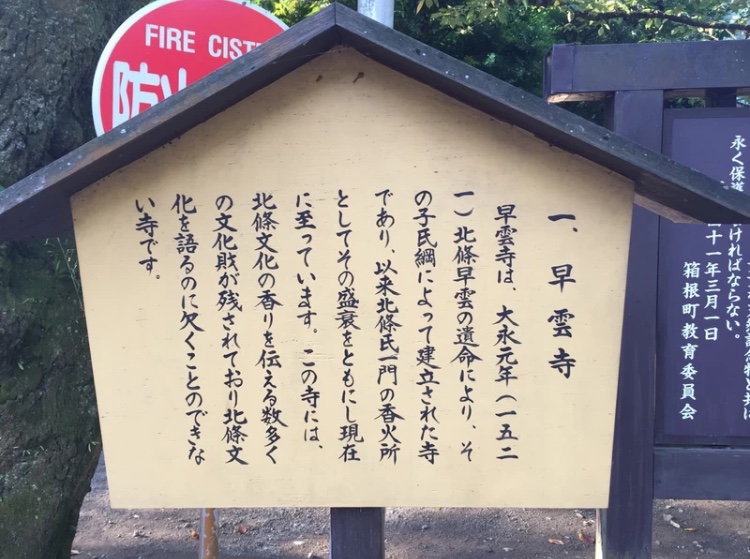 FIRE CIST
防火
一、早雲寺
早雲寺は、大永元年(一五二
一)北條早雲の遺命により、そ
の子氏綱によって建立された寺
であり、以来北條氏一門の香火所
としてその盛衰をともにし現在
に至っています。この寺には、
北條文化の香りを伝える数多く
の文化財が残されており北條文
化を語るのに欠くことのできな
い寺です。
永く保
ければならない。
十一年三月一日
箱根町教育委員会